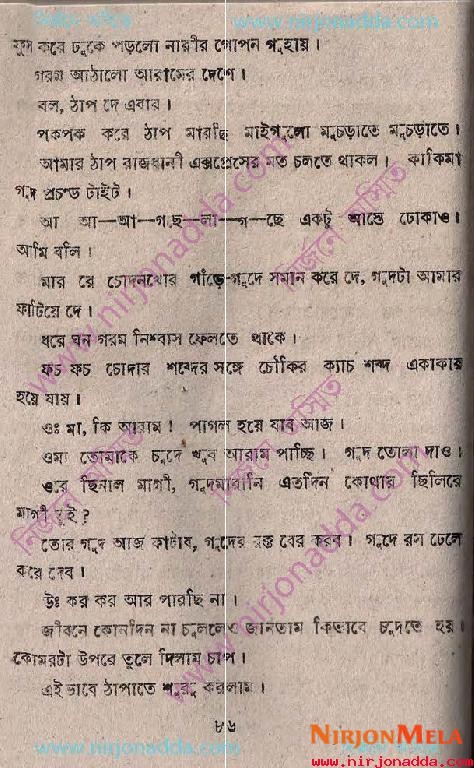 www.nirjonadda.com
করে ঢুকে পড়লো নারীর গোপন গুহায়।
গরম আঠালো আরামের দেশে।
বল, ঠাপ দে এবার।
পকপক করে ঠাপ মারছি মাইগুলো মুচড়াতে মুচড়াতে।
আমার ঠাপ রাজধানী এক্সপ্রেসের মত চলতে থাকল। কাকিমা
গুদ প্রচন্ড টাইট।
আ আ—আ—গ—ছে একটু আস্তে ঢোকাও।
আমি বলি।
মার রে চোদনখোর গাঁড়ে-গুদে সমান করে দে, গুদটা আমার
ফাটিয়ে দে।
ধরে ঘন গরম নিশ্বাস ফেলতে থাকে।
ফচ ফচ চোদার শব্দের সঙ্গে চৌকির ক্যাচ শব্দ একাকার
হয়ে যায়।
ওঃ মা, কি আরাম! পাগল হয়ে যাব আজ।
ওমা তোমাকে চুদে খুব আরাম পাচ্ছি। গুদ তোলা দাও।
ওরে ছিনাল মাগী, গুদমারানি এতদিন কোথায় ছিলিরে
মাগী তুই?
তোর গুদ আজ ফাটাব, গুদের রক্ত বের করব। গুদে রস ঢেলে
করে দেব।
উঃ কর কর আর পারছি না।
জীবনে কোনদিন না চুদলেও জানতাম কিভাবে চুদতে হয়।
কোমরটা উপরে তুলে দিলাম চাপ।
এই ভাবে ঠাপাতে শুরু করলাম।
৮৬
NIRJONMELA
www.nirjonadda.com
www.nirjonadda.com
www.nirjonadda.com
www.nirjonadda.com